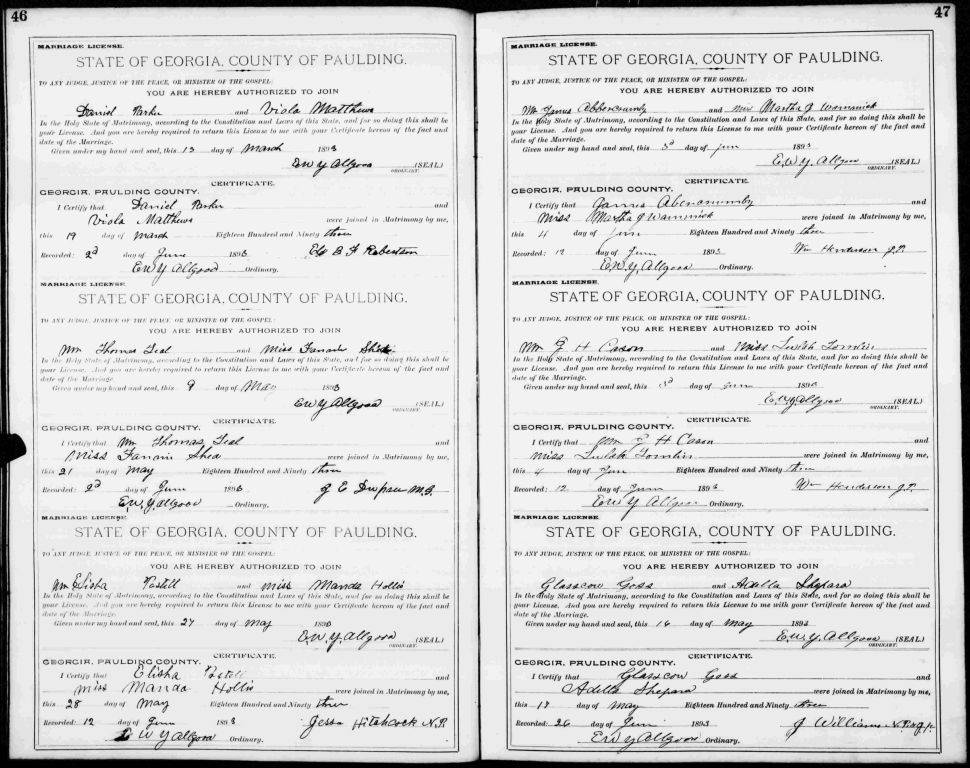 46
MARRIAGE LICENSE.
STATE OF GEORGIA, COUNTY OF PAULDING.
TO ANY JUDGE, JUSTICE OF THE PEACE, OR MINISTER OF THE GOSPEL:
YOU ARE HEREBY AUTHORIZED TO JOIN
Daniel Parker and Viola Matthews
In the Holy State of Matrimony, according to the Constitution and Laws of this State, and for so doing this shall be
your License. And you are hereby required to return this License to me with your Certificate hereon of the fact and
date of the Marriage.
Given under my hand and seal, this 13 day of March 1893
E W Y Allgood (SEAL)
ORDINARY.
CERTIFICATE.
GEORGIA, PAULDING COUNTY.
I Certify that Daniel Parker and
Viola Matthews were joined in Matrimony by me,
this 19 day of March Eighteen Hundred and Ninety three
Recorded: 2d day of June 1893 B F Robertson
E W Y Allgood Ordinary.
MARRIAGE LICENSE.
STATE OF GEORGIA, COUNTY OF PAULDING.
TO ANY JUDGE, JUSTICE OF THE PEACE, OR MINISTER OF THE GOSPEL:
YOU ARE HEREBY AUTHORIZED TO JOIN
Mr Thomas Teal and Miss Fannie Shea
In the Holy State of Matrimony, according to the Constitution and Laws of this State, and for so doing this shall be
your License. And you are hereby required to return this License to me with your Certificate hereon of the fact and
date of the Marriage.
Given under my hand and seal, this 9 day of May 1893
E W Y Allgood (SEAL)
ORDINARY.
CERTIFICATE.
GEORGIA, PAULDING COUNTY.
I Certify that Mr Thomas Teal and
Miss Fannie Shea were joined in Matrimony by me,
this 21 day of May Eighteen Hundred and Ninety three
Recorded: 2d day of June 1893 J E Dupree M.G.
E. W. Y. Allgood Ordinary.
MARRIAGE LICENSE.
STATE OF GEORGIA, COUNTY OF PAULDING.
TO ANY JUDGE, JUSTICE OF THE PEACE, OR MINISTER OF THE GOSPEL:
YOU ARE HEREBY AUTHORIZED TO JOIN
Mr Elisha Postell and Miss Manda Hollis
In the Holy State of Matrimony, according to the Constitution and Laws of this State, and for so doing this shall be
your License. And you are hereby required to return this License to me with your Certificate hereon of the fact and
date of the Marriage.
Given under my hand and seal, this 27 day of May 1893
E. W. Y. Allgood (SEAL)
ORDINARY.
CERTIFICATE.
GEORGIA, PAULDING COUNTY.
I Certify that Elisha Postell and
Miss Manda Hollis were joined in Matrimony by me,
this 28 day of May Eighteen Hundred and Ninety three
Recorded: 12 day of June 1893 Jesse Hitchcock N.P.
E W Y Allgood Ordinary.
47
MARRIAGE LICENSE.
STATE OF GEORGIA, COUNTY OF PAULDING.
TO ANY JUDGE, JUSTICE OF THE PEACE, OR MINISTER OF THE GOSPEL:
YOU ARE HEREBY AUTHORIZED TO JOIN
Mr James Abbercrumby and Miss Martha J Wammick
In the Holy State of Matrimony, according to the Constitution and Laws of this State, and for so doing this shall be
your License. And you are hereby required to return this License to me with your Certificate hereon of the fact and
date of the Marriage.
Given under my hand and seal, this 3d day of June 1893
E. W. Y. Allgood (SEAL)
ORDINARY.
CERTIFICATE.
GEORGIA, PAULDING COUNTY.
I Certify that James and
Miss Martha J Wammick were joined in Matrimony by me,
this 4 day of June Eighteen Hundred and Ninety three
Recorded: 12 day of June 1893 Wm Henderson J.P.
E. W. Y. Allgood Ordinary.
MARRIAGE LICENSE.
STATE OF GEORGIA, COUNTY OF PAULDING.
TO ANY JUDGE, JUSTICE OF THE PEACE, OR MINISTER OF THE GOSPEL:
YOU ARE HEREBY AUTHORIZED TO JOIN
Mr H Cason and Miss Tomlin
In the Holy State of Matrimony, according to the Constitution and Laws of this State, and for so doing this shall be
your License. And you are hereby required to return this License to me with your Certificate hereon of the fact and
date of the Marriage.
Given under my hand and seal, this 3d day of June 1893
E. W. Y. Allgood (SEAL)
ORDINARY.
CERTIFICATE.
GEORGIA, PAULDING COUNTY.
I Certify that Mr H Cason and
Miss Tomlin were joined in Matrimony by me,
this 4 day of June Eighteen Hundred and Ninety three
Recorded: 12 day of June 1893 Wm Henderson J.P.
E W Y Allgood Ordinary.
MARRIAGE LICENSE.
STATE OF GEORGIA, COUNTY OF PAULDING.
TO ANY JUDGE, JUSTICE OF THE PEACE, OR MINISTER OF THE GOSPEL:
YOU ARE HEREBY AUTHORIZED TO JOIN
Glasscow Goss and Adella Shepard
In the Holy State of Matrimony, according to the Constitution and Laws of this State, and for so doing this shall be
your License. And you are hereby required to return this License to me with your Certificate hereon of the fact and
date of the Marriage.
Given under my hand and seal, this 16 day of May 1893
E. W. Y. Allgood (SEAL)
ORDINARY.
CERTIFICATE.
GEORGIA, PAULDING COUNTY.
I Certify that Glasscow Goss and
Adella Shepard were joined in Matrimony by me,
this 17 day of May Eighteen Hundred and Ninety three
Recorded: 26 day of June 1893 J Williams N.P. & J.P.
E W Y Allgood Ordinary.